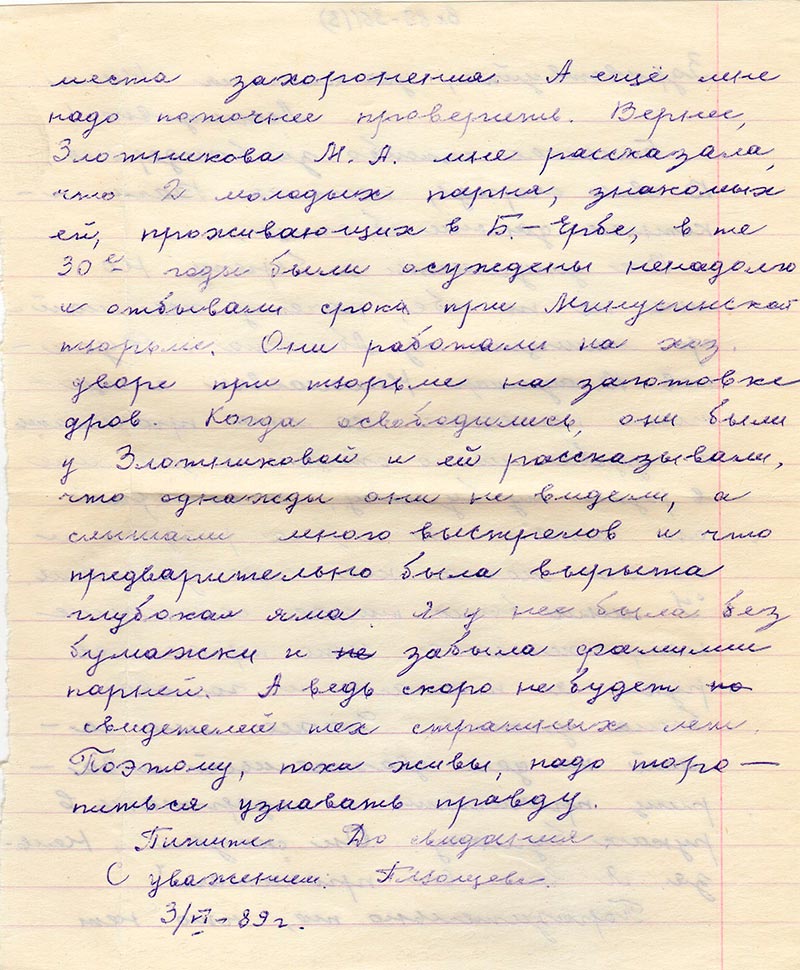 места захоронения. А ещё мне
надо поточнее проверить. Вернее,
Зложникова М. А. мне рассказала,
что 2 молодых парня, знакомых
ей, проживающих в Б.-Ербе, в те
30е годы были осуждены ненадолго
и отбывали срока при Минусинской
тюрьме. Они работали на хоз.
дворе при тюрьме на заготовке
дров. Когда освободились, они были
у Зложниковой и ей рассказывали,
что однажды они не видели, а
слышали много выстрелов и что
предварительно была вырыта
глубокая яма. Я у нее была без
бумажки и не забыла фамилии
парней. А ведь скоро не будет по
свидетелей тех страшных лет.
Поэтому, пока живы, надо торо-
питься узнавать правду.
Пишите. До свидания
С уважением.
3/VI-89 г.